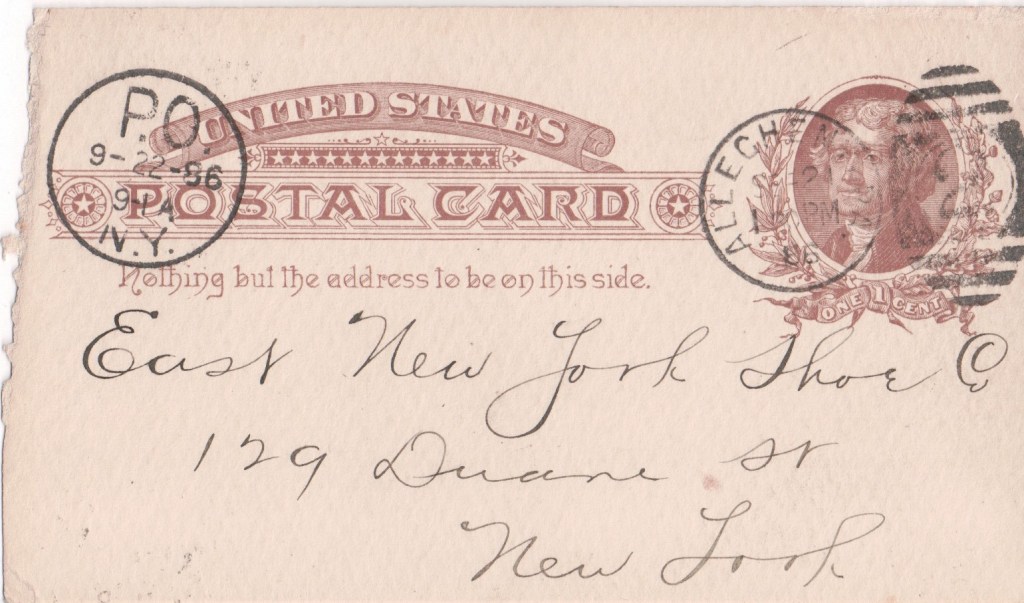 UNITED STATES
POSTAL CARD
Nothing but the address to be on this side.
P.O.
9-22-86
9-1A
N.Y.
ALLEGHEN
21
PM
86
ONE 1 CENT
East New York Shoe Co
129 Duane St
New York